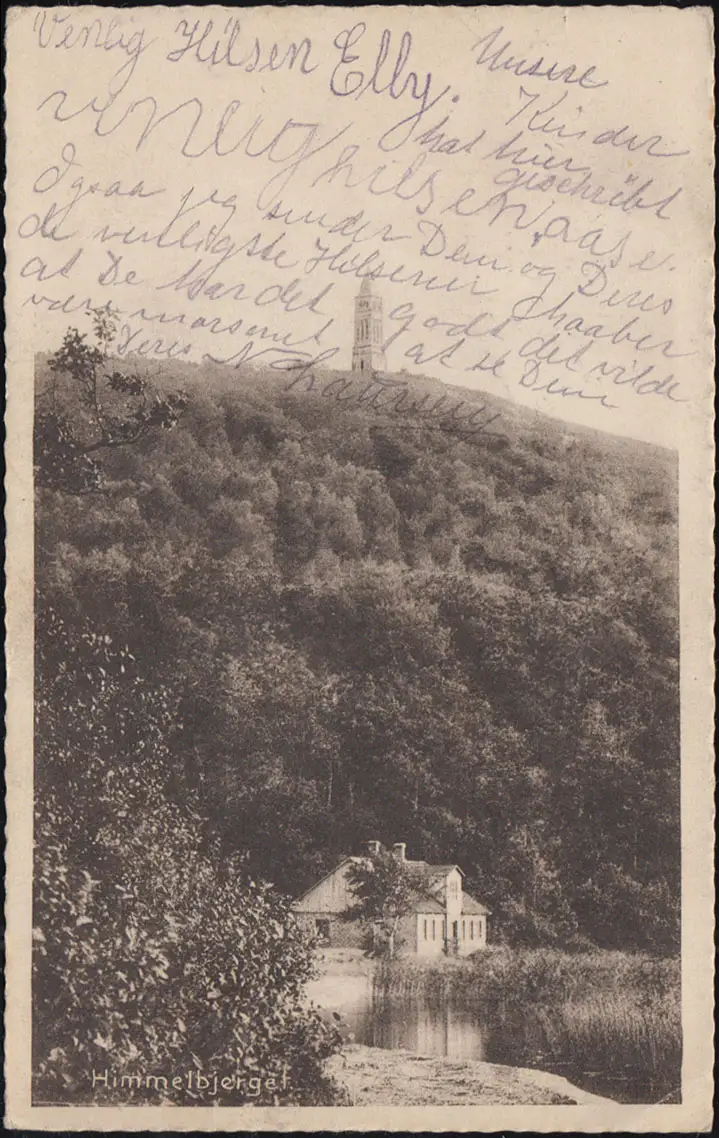 Venlig Hilsen Elly.
Unsere
Kinder
hat hier
geschribt
venlig hilsen Aase.
Ogsaa jeg sender Dem og Deres
de venligste Hilsener, haaber
at De har det godt det vilde
være morsomt at se Dem
Deres N
Himmelbjerget